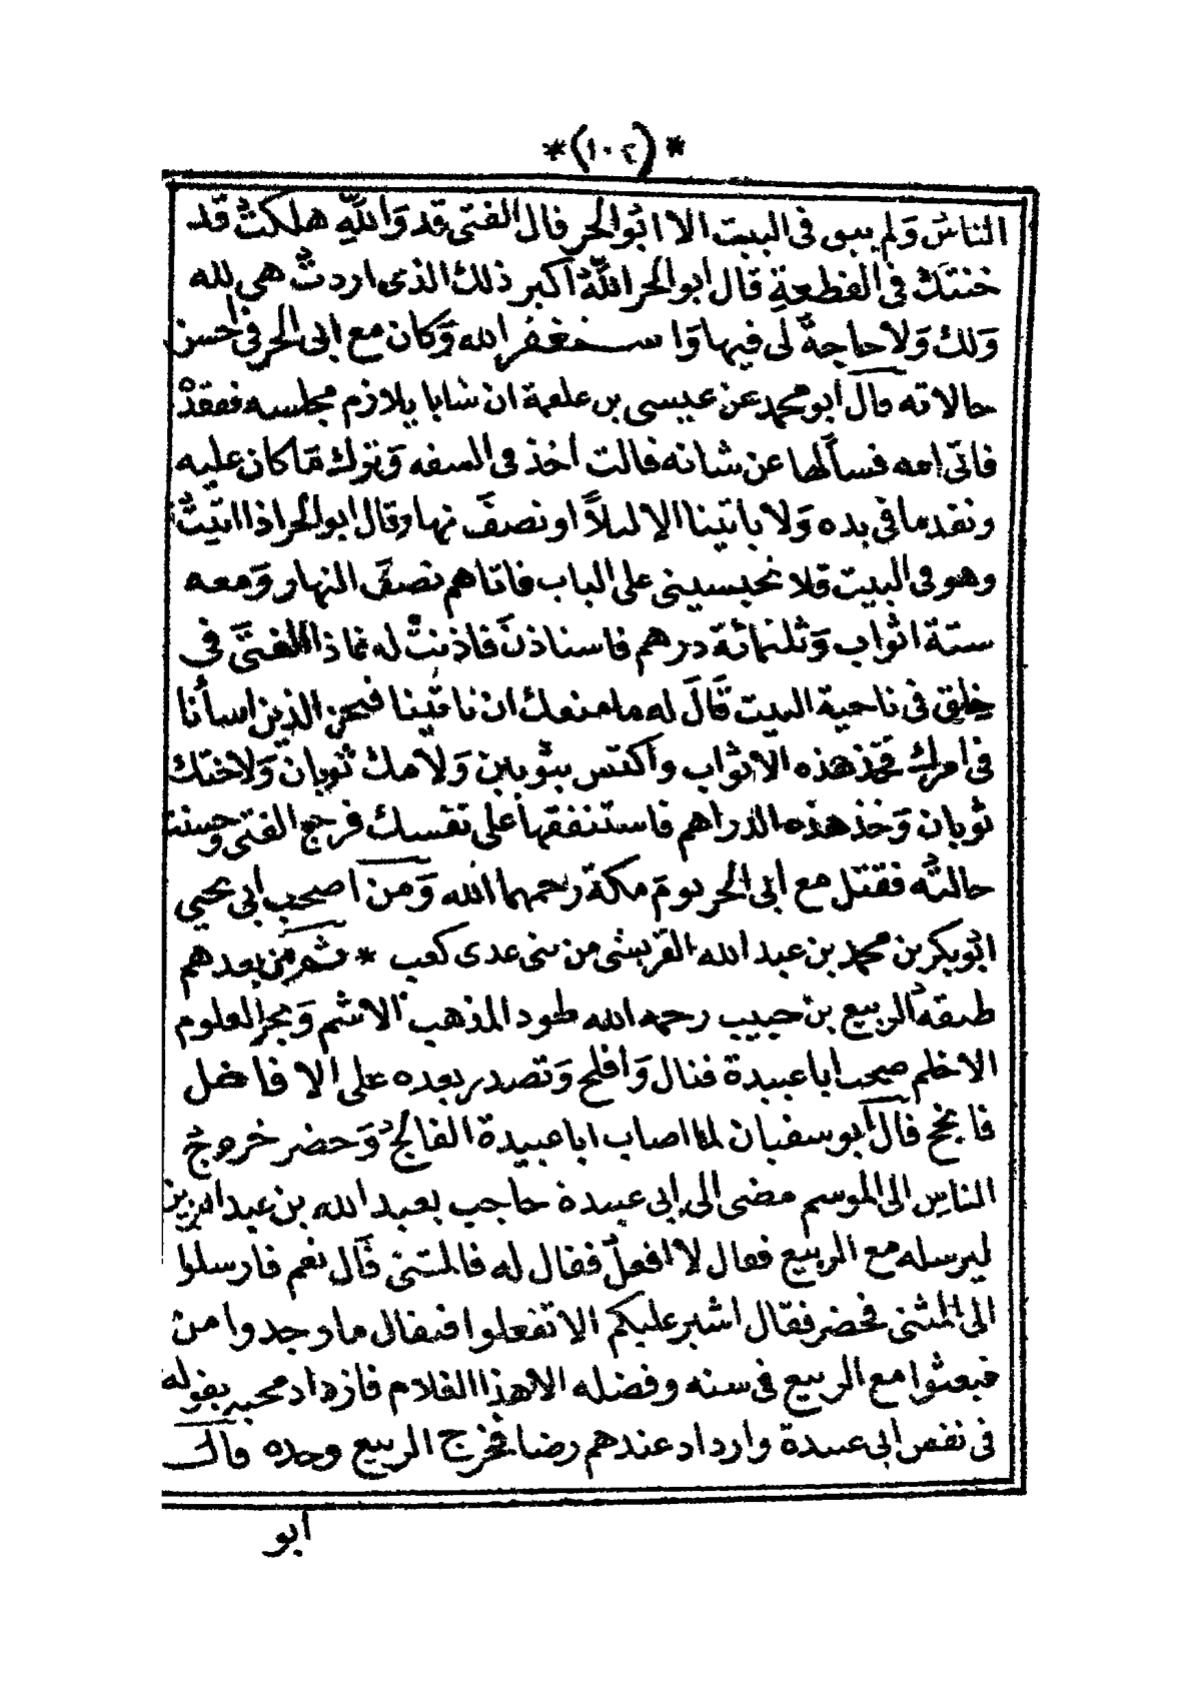 *(١٠٢)*
الناس وَلم يبق فى البيت الا ابُو الحر فال الفتى قد وَاللَّهِ هلكتُ قد
خنتكَ فى القطعةِ قال ابو الحر اللَّهُ اكبر ذلك الذى اردتُ هى لله
وَلك وَلا حاجةٌ لى فيها وَا ستغفر الله وَكان مع ابى الحر فى احسن
حالاته قال ابو محمد عن عيسى بن علقمة ان شابا يلازم مجلسه ففقدْ
فاتى امه فسألها عن شانه فالت اخذ فى السفه وَترك مَا كان عليه
ونفد ما فى يده وَلا ياتينا الا ليلاً او نصفَ نهار وقال ابو الحر اذا اتيتُ
وهو فى البيت فلا تحبسينى على الباب فاتاهم نصفَ النهار وَمعه
ستة اثواب وَثلثمائة درهم فاستاذنَ فاذنتْ له فاذا الفتَى فى
خلِق فى ناحية البيت قَالَ له ما منعك ان تاتينا فنحن الذين اسأنا
فى امرك فخذ هذه الاثواب وَاكتس بثوبين وَلامك ثوبان وَلاختك
ثوبان وَخذ هذه الدراهم فاستنفقها على نفسك فرجع الفتى وحسنت
حالتُه فقتل مع ابى الحر يومَ مكة رحمهما الله وَمن اصحاب ابى يحيى
ابُو بكر بن محمد بن عبد الله القريشى من بنى عدى كعب * ثم من بعدهم
طبقه الربيع بن حبيب رحمه الله طود المذهب الاشم وَبحر العلوم
الاخظم صحب ابا عبيدة فنال وَافلح وَتصدر بعده على الا فاضل
فا نجح قال ابو سفيان لما اصاب ابا عبيدة الفالجُ وَحضر خروجُ
الناسِ الى الموسم مضى الى ابى عبيدة حاجب بعبد الله بن عبد العزيز
ليرسله مع الربيع فقال لا افعلُ فقال له فالمثنى قَال نعم فارسلوا
الى المثنى فحضر فقال اشير عليكم الا تفعلوا فيقال ما وجدوا منْ
يبعثوا مع الربيع فى سنه وفضله الا هذا الغلام فازداد محبه بقوله
فى نفس ابى عبيدة وازداد عندهم رضا فخرج الربيع وحده قال
ابو